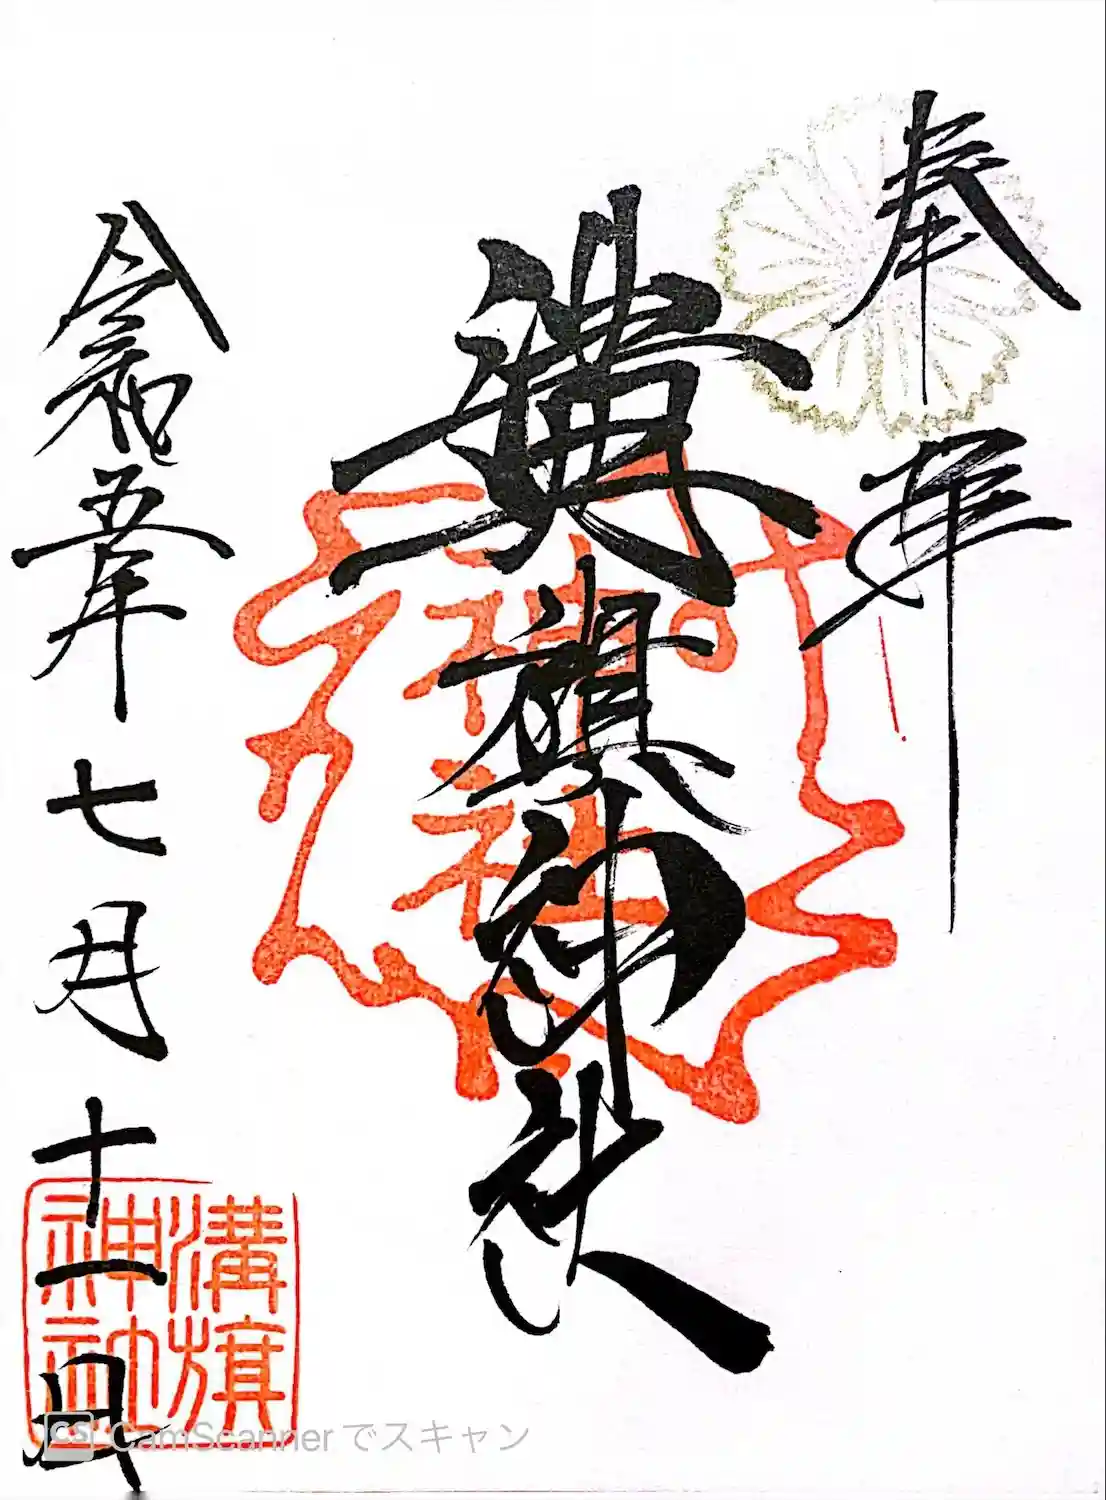 奉拝
溝旗神社
神社
令和五年七月十一日
溝旗
神社
CS CamScannerでスキャン